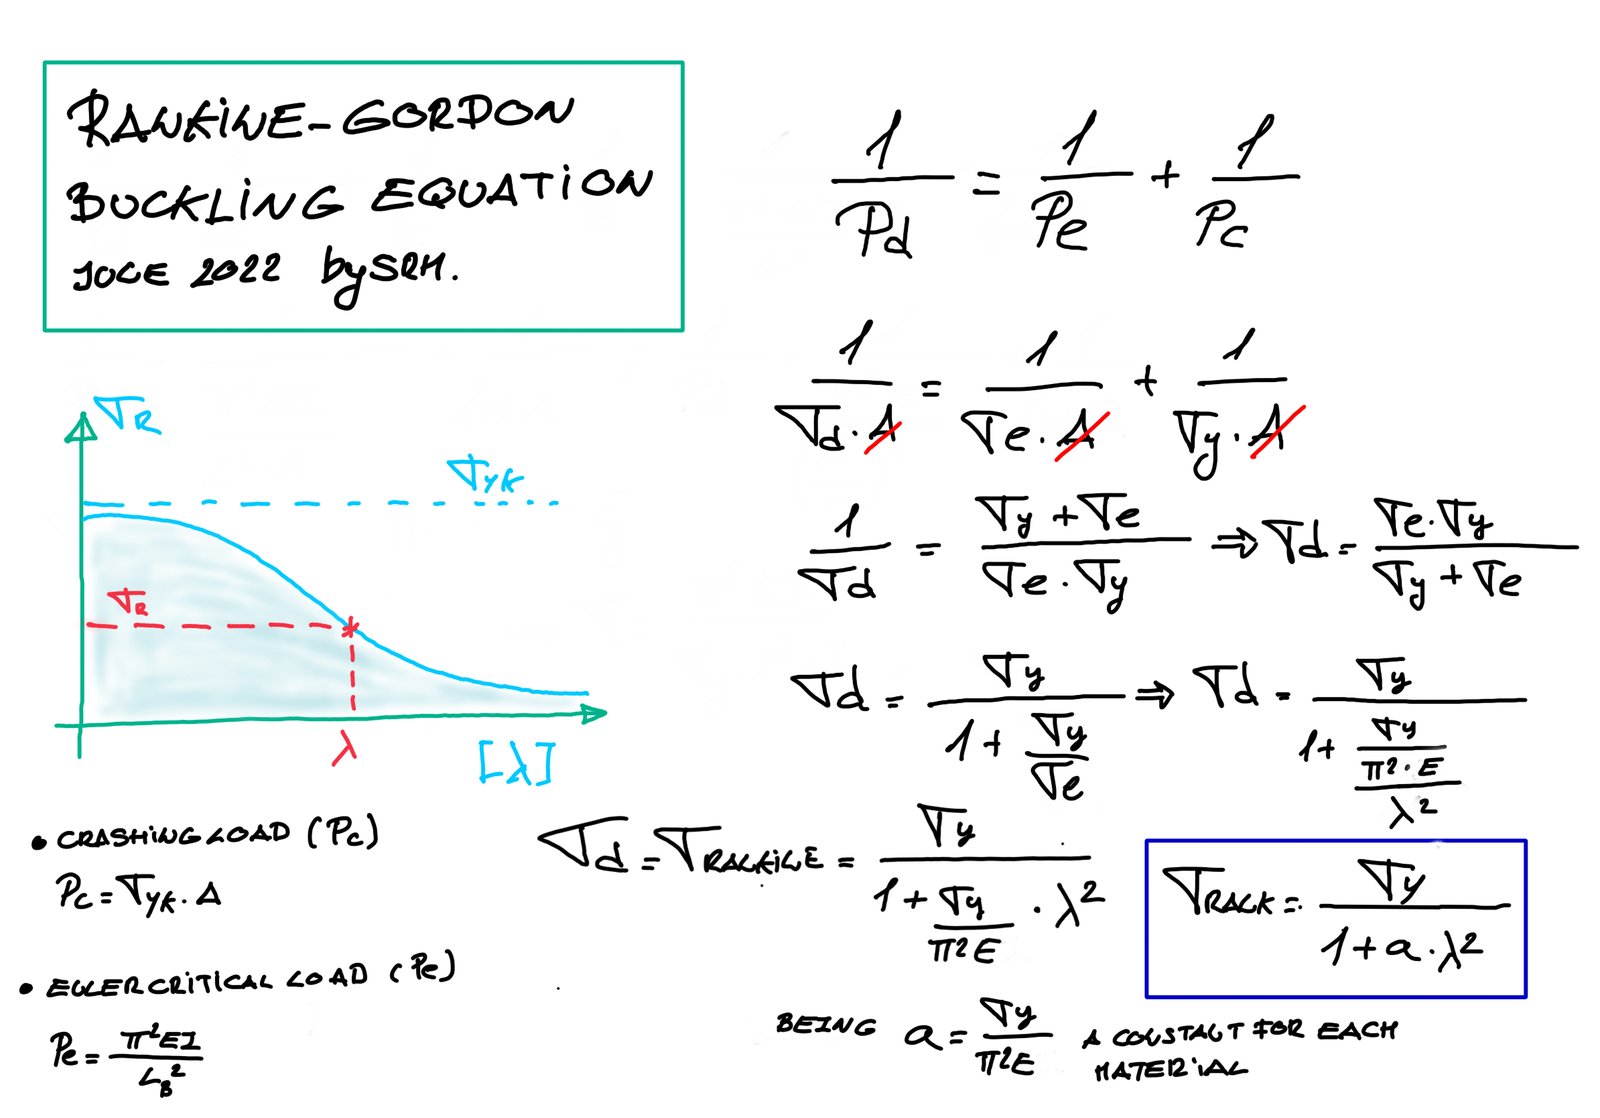 RANKINE-GORDON
BUCKLING EQUATION
JUNE 2022 by SRM.
σR
σYK
σR
λ
[λ]
• CRASHING LOAD (Pc)
Pc = σYK · A
• EULER CRITICAL LOAD (Pe)
Pe = π²EI / L_B²
1/Pd = 1/Pe + 1/Pc
1/(σd · A) = 1/(σe · A) + 1/(σy · A)
1/σd = (σy + σe)/(σe · σy) ⇒ σd = (σe · σy)/(σy + σe)
σd = σy/(1 + σy/σe) ⇒ σd = σy/(1 + σy/(π² · E/λ²))
σd = σRANKINE = σy/(1 + σy/(π²E) · λ²)
σRANK = σy/(1 + a · λ²)
BEING a = σy/(π²E) A CONSTANT FOR EACH
MATERIAL